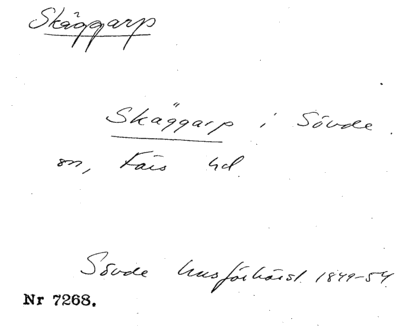 Skäggarp
Skäggarp i Sövde
sn, Färs hd.
Sövde husförhörsl. 1849-54.
Nr 7268.